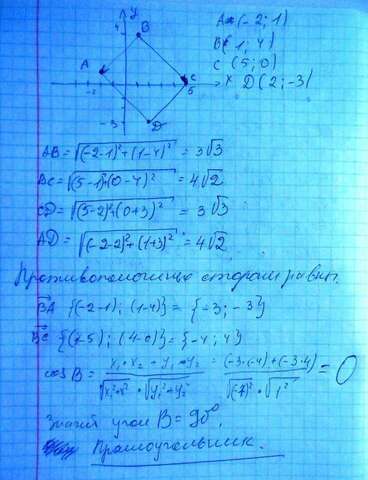 y
4 B A (-2; 1)
B( 1; 4)
A C (5; 0)
-2 C 5 x D (2; -3)
-3 D
AB = √(-2-1)²+(1-4)² = 3√3
BC = √(5-1)²+(0-4)² = 4√2
CD = √(5-2)²+(0+3)² = 3√3
AD = √(-2-2)²+(1+3)² = 4√2
Противоположные стороны равны.
BA {(-2-1); (1-4)} = {-3; -3}
BC {(1-5); (4-0)} = {-4; 4}
cos B = x₁·x₂ + y₁·y₂ / √x₁²+x₂² · √y₁²+y₂² = (-3·(-4)+(-3·4) / √(-7)² · √1² = 0
Значит угол B = 90°,
Прямоугольник.